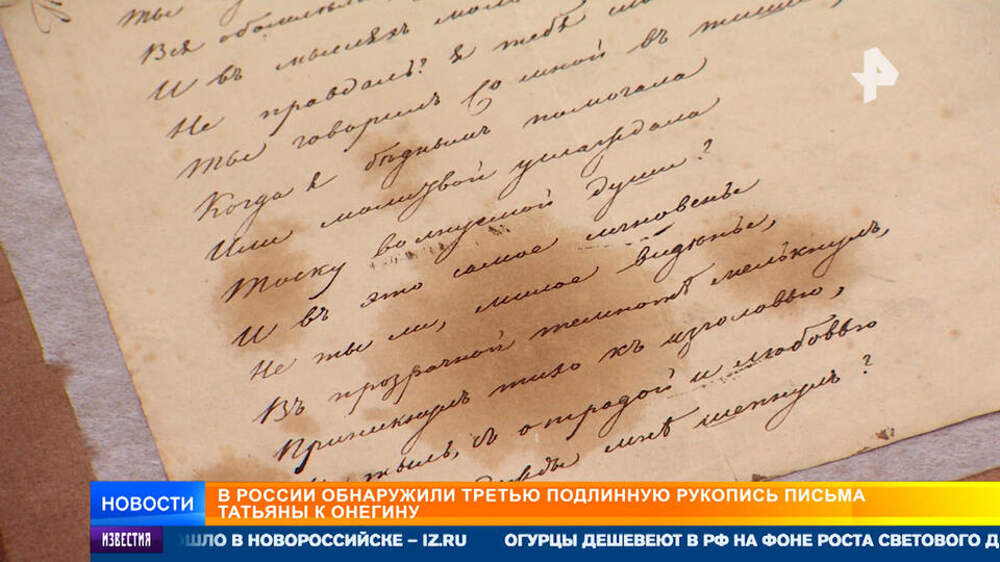 Ты
Вся
И въ мысляхъ
Не правдаль? я тебя
Ты говорилъ со мной въ тиши
Когда я бѣднымъ помогала
Или молитвой услаждала
Тоску волнуемой души?
И въ это самое мгновенье
Не ты ли, милое видѣнье,
Въ прозрачной темнотѣ мелькнулъ,
Приникнулъ тихо къ изголовью,
съ отрадой и любовью
мнѣ шепнулъ?
НОВОСТИ
В РОССИИ ОБНАРУЖИЛИ ТРЕТЬЮ ПОДЛИННУЮ РУКОПИСЬ ПИСЬМА
ТАТЬЯНЫ К ОНЕГИНУ
ИЗВЕСТИЯ
ШЛО В НОВОРОССИЙСКЕ – IZ.RU ОГУРЦЫ ДЕШЕВЕЮТ В РФ НА ФОНЕ РОСТА СВЕТОВОГО Д